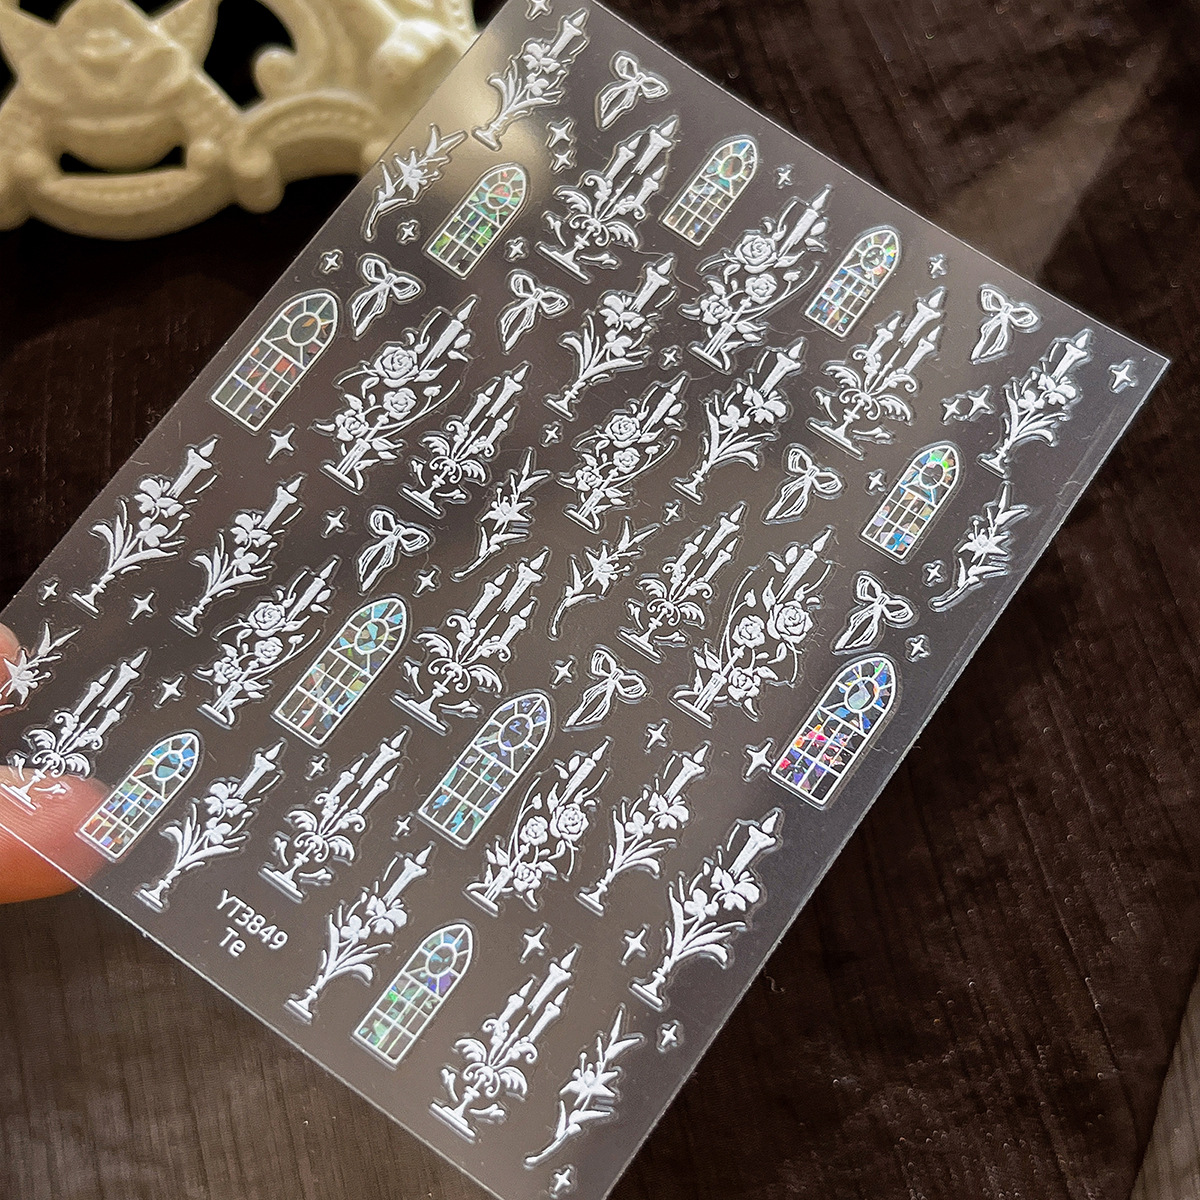 YT3849
Te